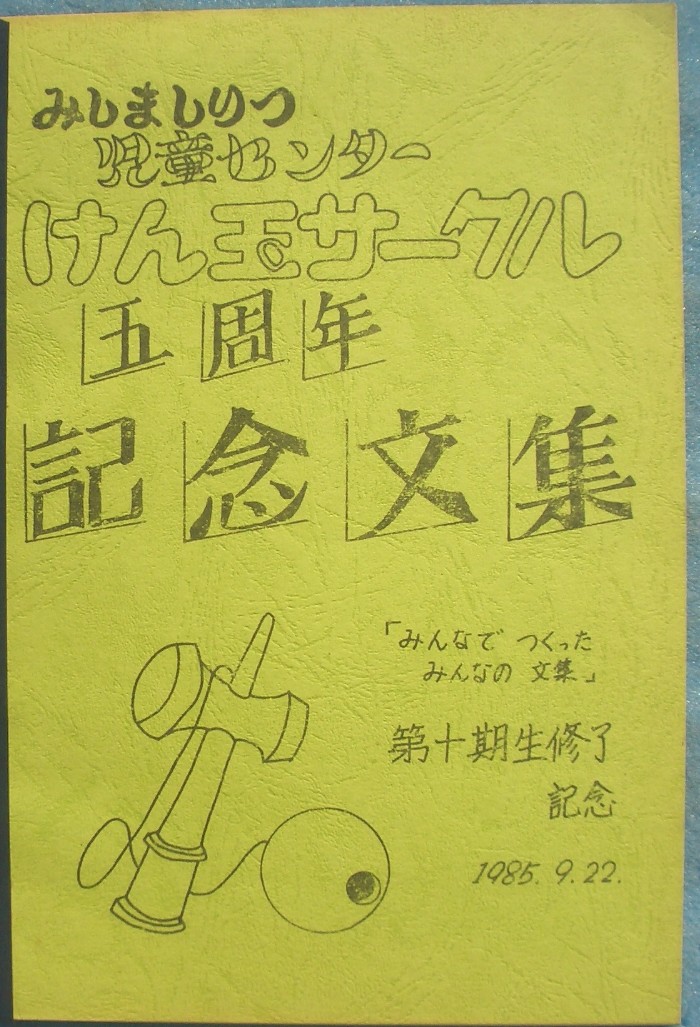 みしましりつ
児童センター
けん玉サークル
五周年
記念文集
「みんなで つくった
みんなの 文集」
第十期生修了
記念
1985.9.22.